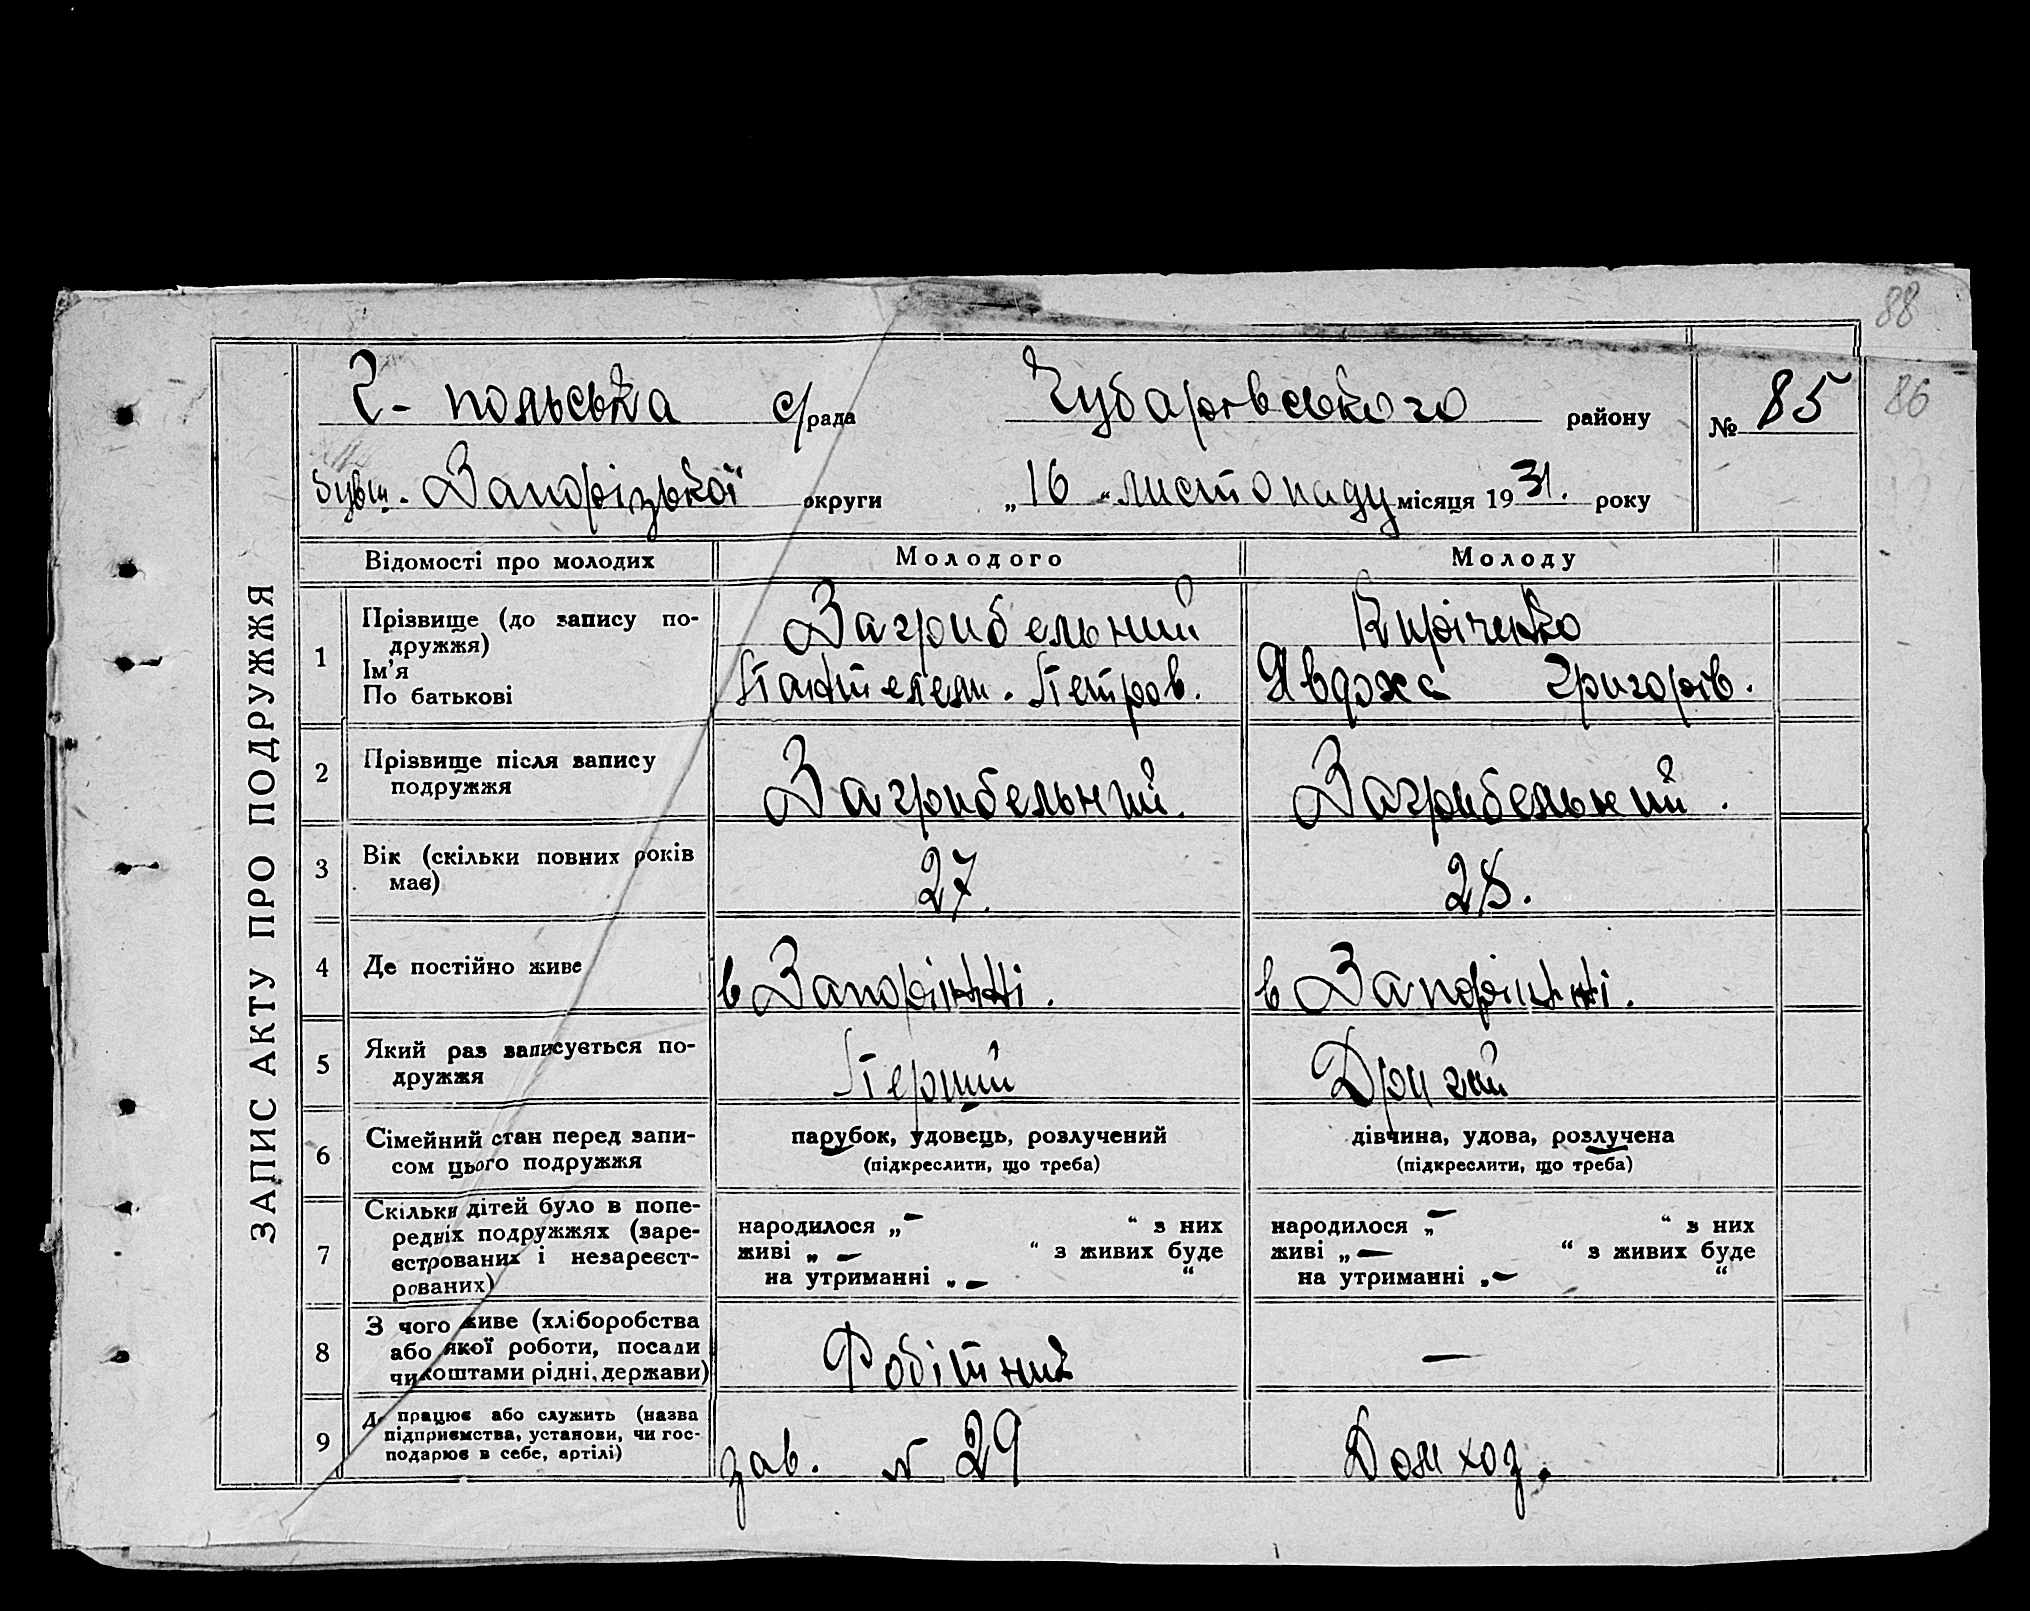 88
Г - польська с/рада Чубарівського району № 85
86
бувш. Запорізької округи „16“ листопаду місяця 1931. року
ЗАПИС АКТУ ПРО ПОДРУЖЖЯ
Відомості про молодих Молодого Молоду
1 Прізвище (до запису по- Загрибельний Кіріченко
дружжя)
Ім'я Пантелем. Петров. Явдоха Григорів.
По батькові
2 Прізвище після запису Загрибельний. Загрибельний.
подружжя
3 Вік (скільки повних років 27. 28.
має)
4 Де постійно живе в Запоріжжі. в Запоріжжі.
5 Який раз записується по- Перший Другий
дружжя
6 Сімейний стан перед запи- парубок, удовець, розлучений дівчина, удова, розлучена
сом цього подружжя (підкреслити, що треба) (підкреслити, що треба)
7 Скільки дітей було в попе-
редніх подружжях (заре- народилося „— “ з них народилося „— “ з них
єстрованих і незареєст- живі „ — “ з живих буде живі „— “ з живих буде
рованих) на утриманні „ — “ на утриманні „— “
8 З чого живе (хліборобства
або якої роботи, посади Робітник —
чи коштами рідні, держави)
9 Де працює або служить (назва
підприємства, установи, чи гос- зав. № 29 Домхоз.
подарює в себе, артілі)